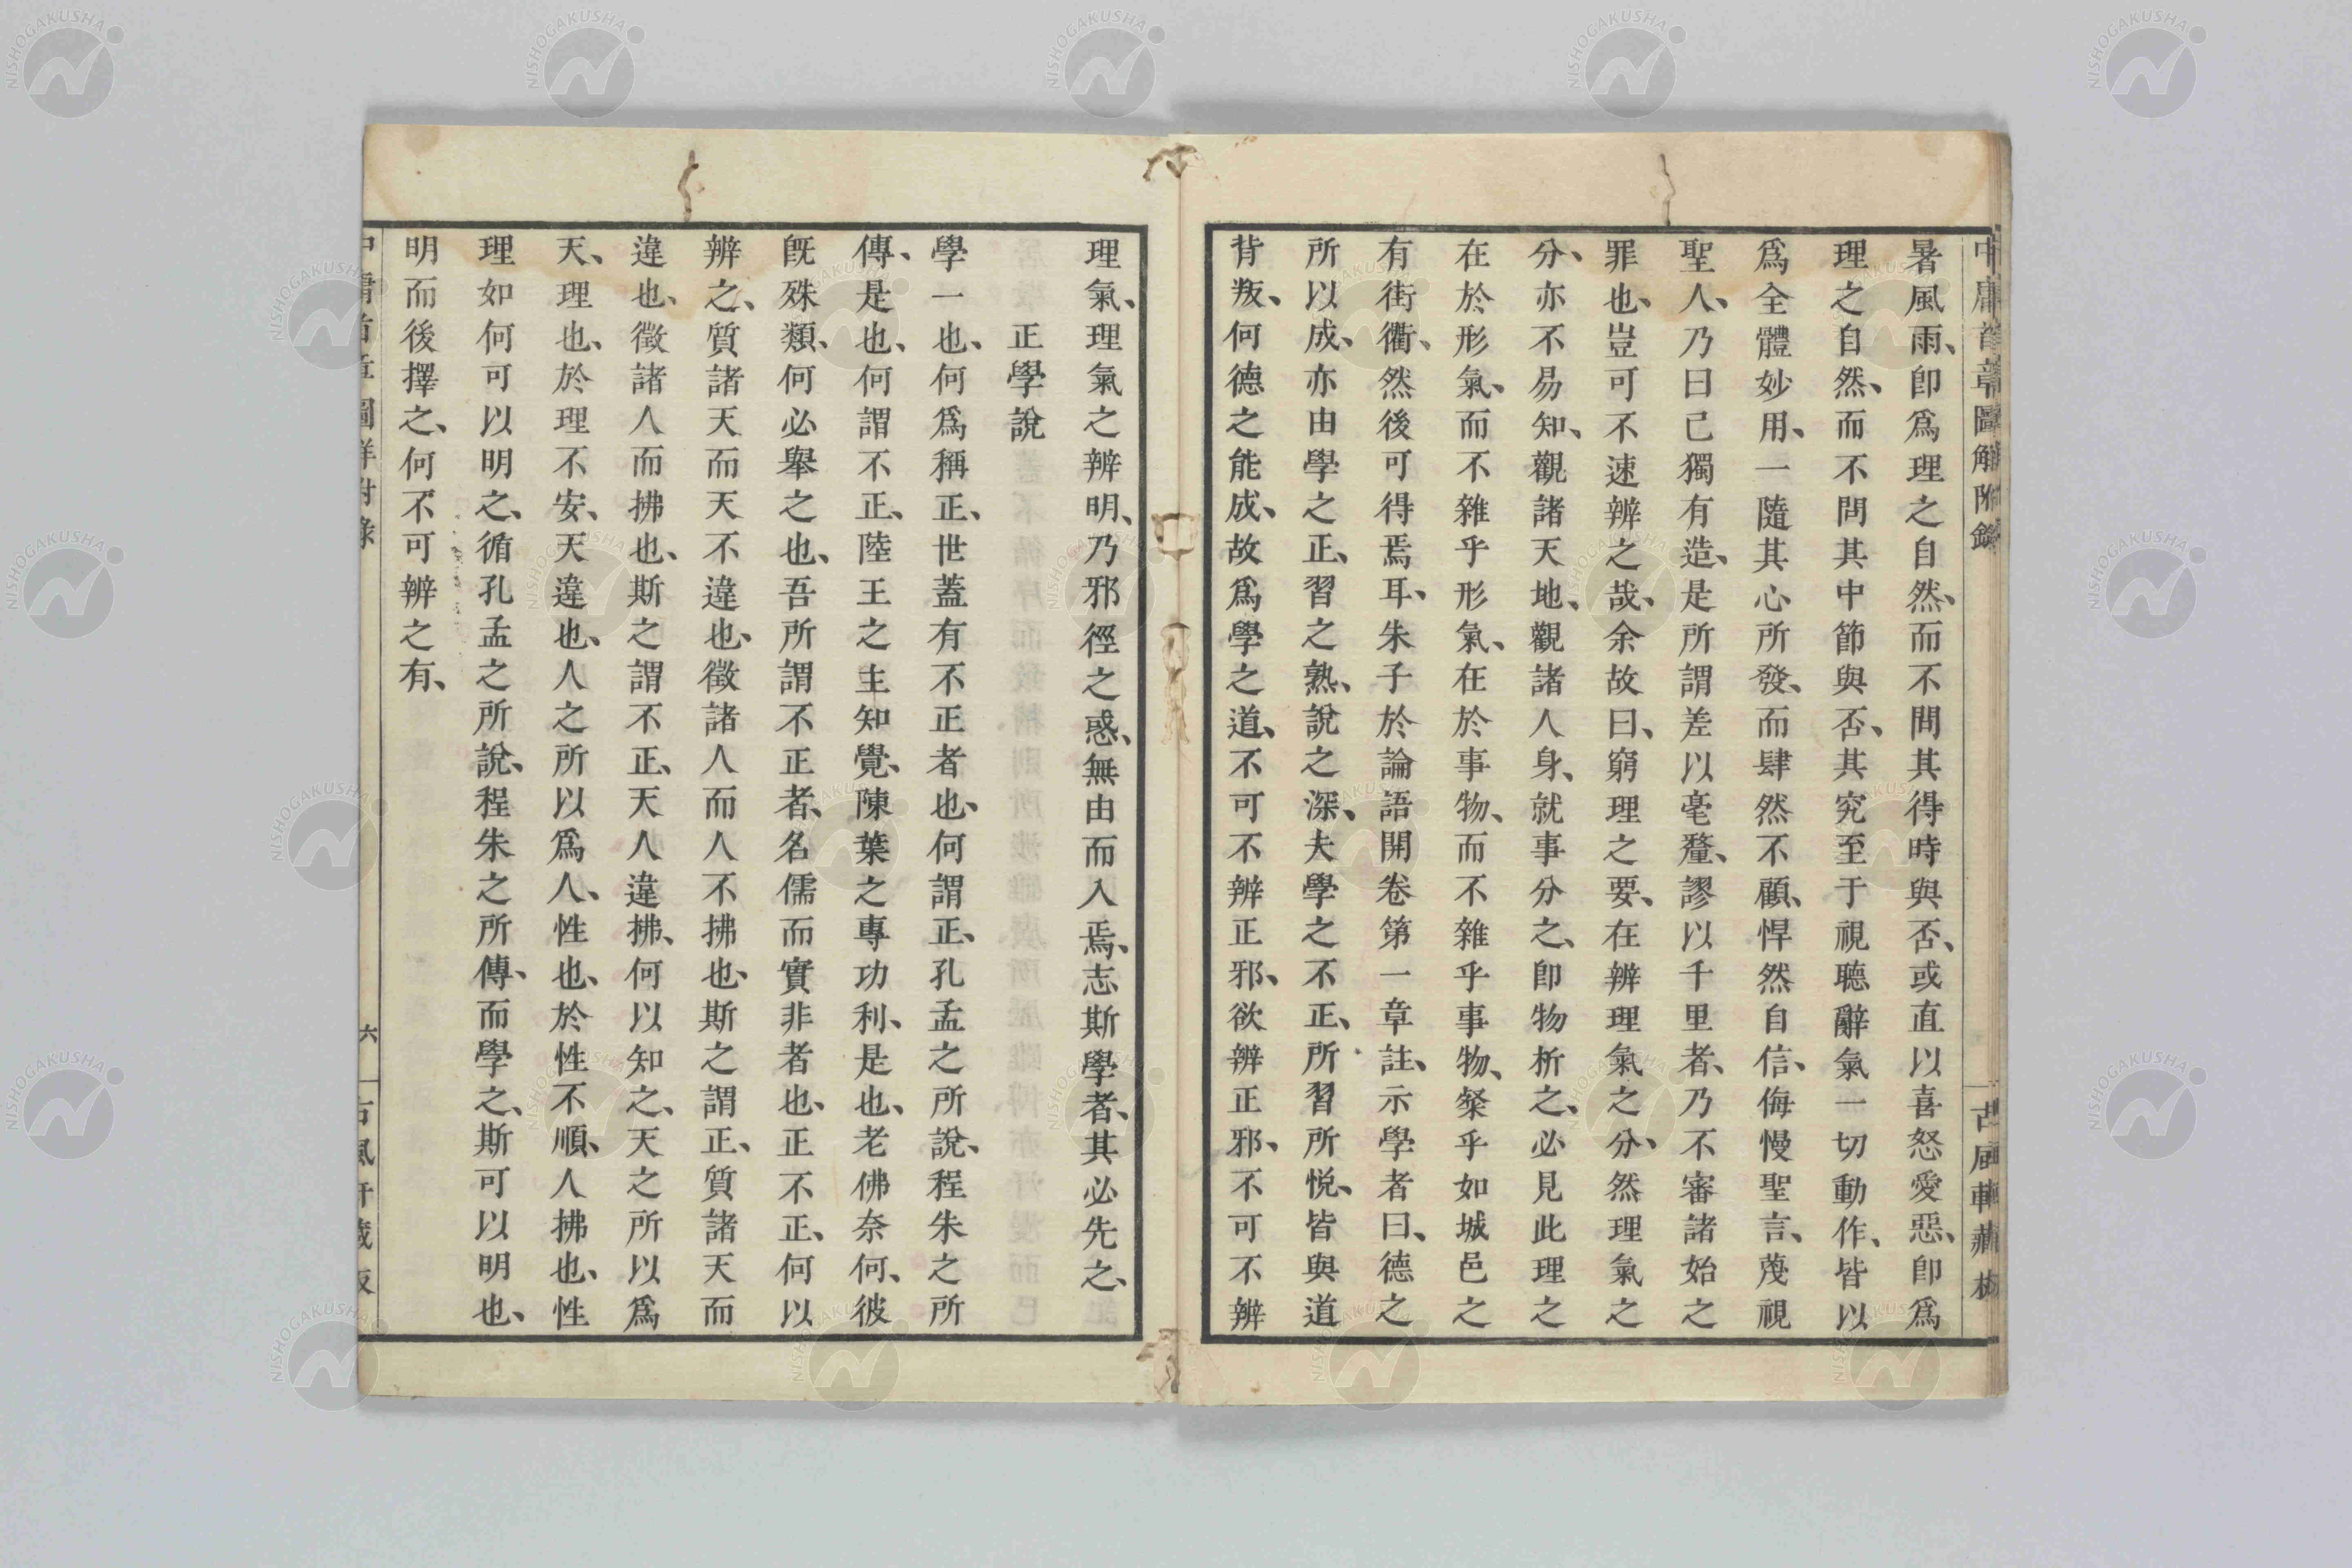 中庸首章圖解附錄
古風軒藏板
暑風雨、卽爲理之自然、而不問其得時與否、或直以喜怒愛惡、卽爲
理之自然、而不問其中節與否、其究至于視聽辭氣一切動作、皆以
爲全體妙用、一隨其心所發、而肆然不顧、悍然自信、侮慢聖言、蔑視
聖人、乃曰己獨有造、是所謂差以毫釐、謬以千里者、乃不審諸始之
罪也、豈可不速辨之哉、余故曰、窮理之要、在辨理氣之分、然理氣之
分、亦不易知、觀諸天地、觀諸人身、就事分之、卽物析之、必見此理之
在於形氣、而不雜乎形氣、在於事物、而不雜乎事物、粲乎如城邑之
有街衢、然後可得焉耳、朱子於論語開卷第一章註、示學者曰、德之
所以成、亦由學之正、習之熟、說之深、夫學之不正、所習所悅、皆與道
背叛、何德之能成、故爲學之道、不可不辨正邪、欲辨正邪、不可不辨
理氣、理氣之辨明、乃邪徑之惑、無由而入焉、志斯學者、其必先之、
正學說
學一也、何爲稱正、世蓋有不正者也、何謂正、孔孟之所說、程朱之所
傳、是也、何謂不正、陸王之主知覺、陳葉之專功利、是也、老佛奈何、彼
旣殊類、何必舉之也、吾所謂不正者、名儒而實非者也、正不正、何以
辨之、質諸天而天不違也、徵諸人而人不拂也、斯之謂正、質諸天而
違也、徵諸人而拂也、斯之謂不正、天人違拂、何以知之、天之所以爲
天、理也、於理不安、天違也、人之所以爲人、性也、於性不順、人拂也、性
理如何可以明之、循孔孟之所說、程朱之所傳、而學之、斯可以明也、
明而後擇之、何不可辨之有、
中庸首章圖解附錄
六
古風軒藏板